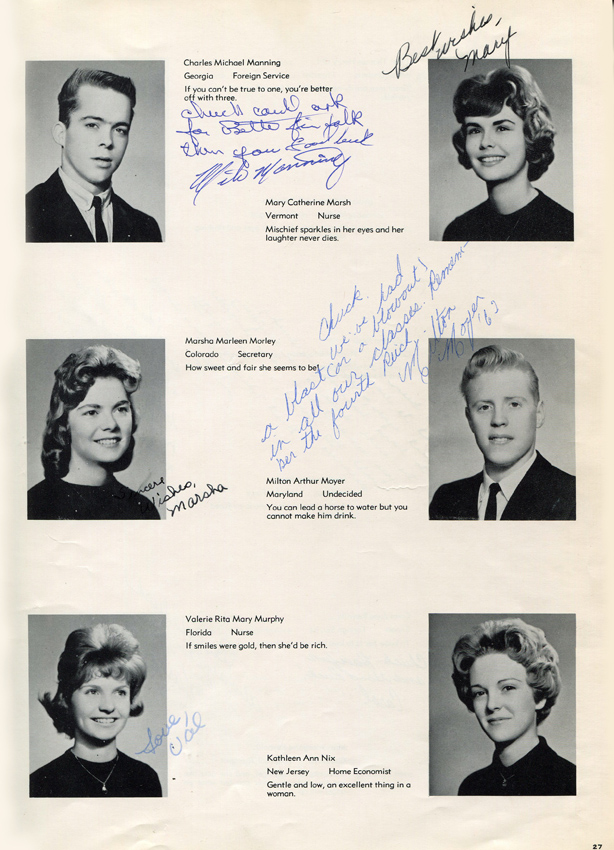 Best wishes,
Mary
Charles Michael Manning
Georgia Foreign Service
If you can't be true to one, you're better
off with three.
Chuck
for
then you Good luck
Mike Manning
Mary Catherine Marsh
Vermont Nurse
Mischief sparkles in her eyes and her
laughter never dies.
Chuck. we've had
a blast (or a blowout!
in all our classes. Remem-
ber the fourth Reich. Milton
Moyer '63
Marsha Marleen Morley
Colorado Secretary
How sweet and fair she seems to be!
Sincere
Wishes,
Marsha
Milton Arthur Moyer
Maryland Undecided
You can lead a horse to water but you
cannot make him drink.
Valerie Rita Mary Murphy
Florida Nurse
If smiles were gold, then she'd be rich.
Love,
Val
Kathleen Ann Nix
New Jersey Home Economist
Gentle and low, an excellent thing in a
woman.
27